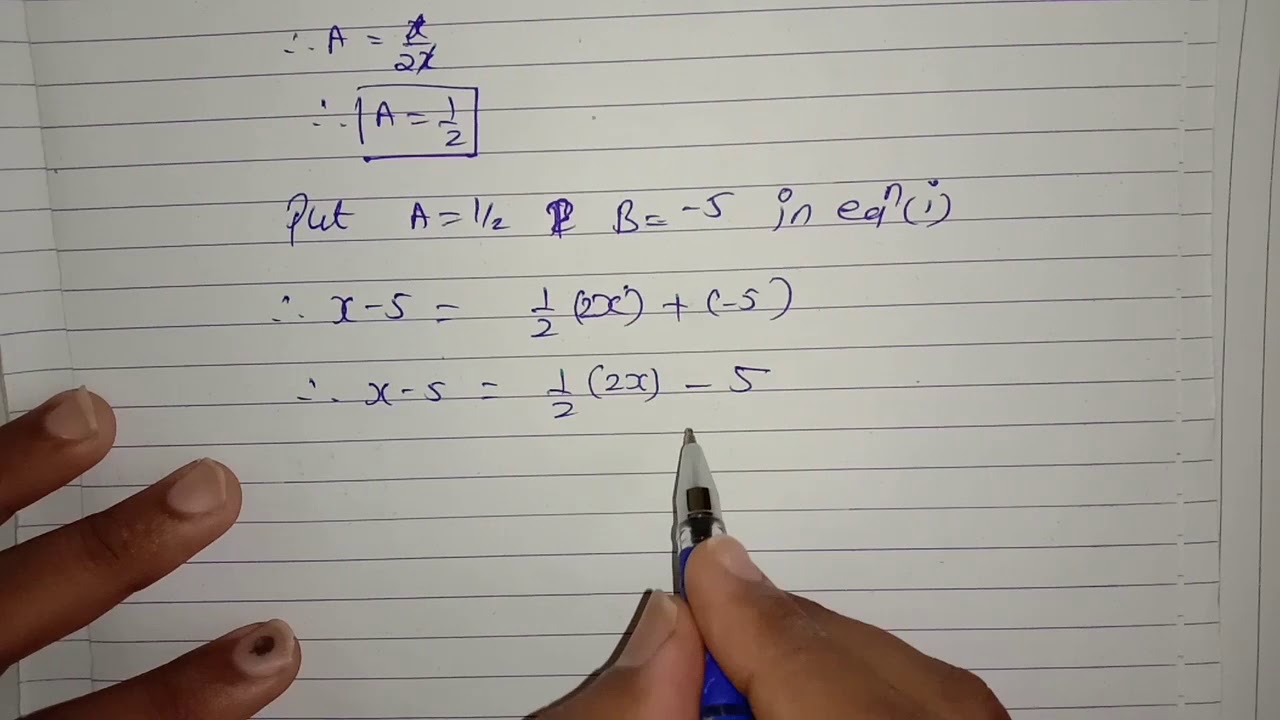 ∴ A = x/2x
∴ A = 1/2
Put A = 1/2 & B = -5 in eqⁿ(i)
∴ x - 5 = 1/2 (2x) + (-5)
∴ x - 5 = 1/2 (2x) - 5